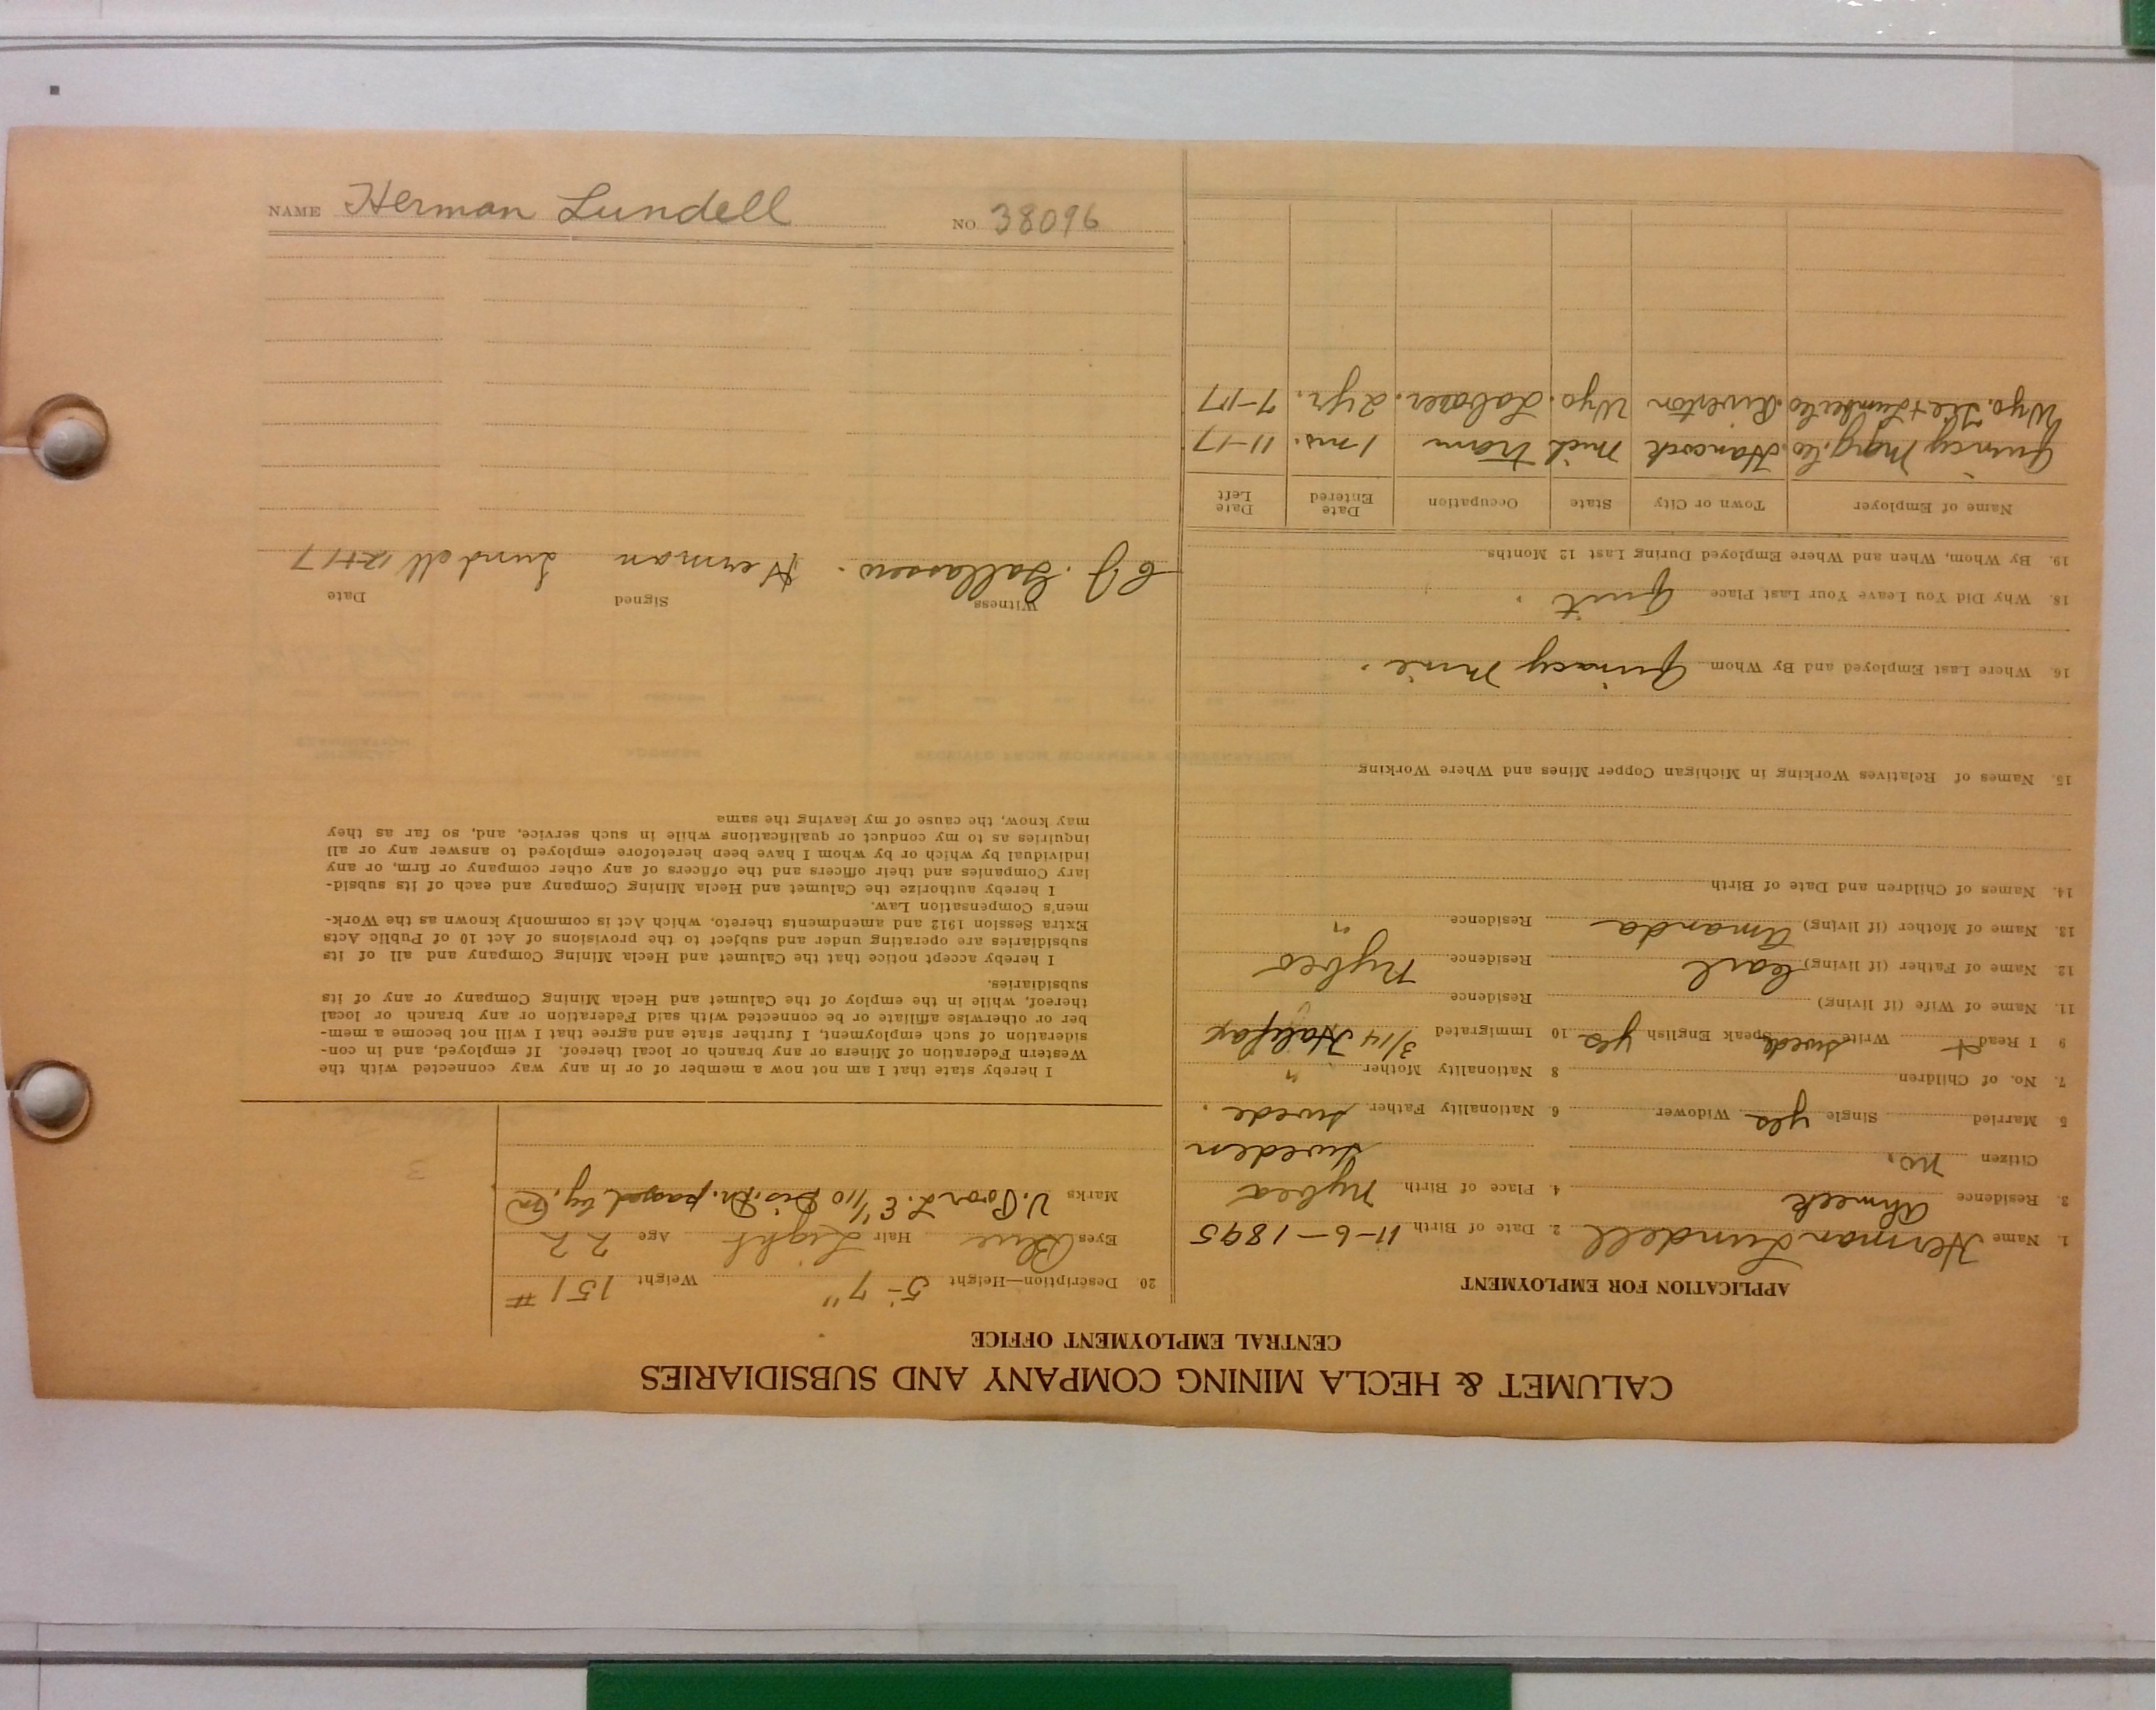 NAME Herman Lundell NO 38096
CALUMET & HECLA MINING COMPANY AND SUBSIDIARIES
CENTRAL EMPLOYMENT OFFICE
APPLICATION FOR EMPLOYMENT
1. Name Herman Lundell 2. Date of Birth 11-6-1895
3. Residence Ahmeek 4. Place of Birth Nybro
Citizen no. Sweden
5 Married Single yes Widower 6 Nationality Father swede.
7. No. of Children 8 Nationality Mother "
9 I Read + Write swede Speak English yes 10 Immigrated 3/14 Halifax
11. Name of Wife (if living) Residence
12 Name of Father (if living) Carl Residence Nybro
13. Name of Mother (if living) Amanda Residence "
14. Names of Children and Date of Birth
15. Names of Relatives Working in Michigan Copper Mines and Where Working
16. Where Last Employed and By Whom Quincy Mine.
18. Why Did You Leave Your Last Place Quit.
19. By Whom, When and Where Employed During Last 12 Months
Name of Employer Town or City State Occupation Date Entered Date Left
Quincy Mng. Co. Hancock Mich Tram 1 mo. 11-17
Wyo. Tie + Lumber Co. Riverton Wyo. Laborer. 2 yr. 7-17
20 Description—Height 5-7" Weight 151#
Eyes Blue Hair Light Age 22
Marks V. Poor L.E 1/10 Dis. Dr. passed by.
I hereby state that I am not now a member of or in any way connected with the
Western Federation of Miners or any branch or local thereof. If employed, and in con-
sideration of such employment, I further state and agree that I will not become a mem-
ber or otherwise affiliate or be connected with said Federation or any branch or local
thereof, while in the employ of the Calumet and Hecla Mining Company or any of its
subsidiaries.
I hereby accept notice that the Calumet and Hecla Mining Company and all of its
subsidiaries are operating under and subject to the provisions of Act 10 of Public Acts
Extra Session 1912 and amendments thereto, which Act is commonly known as the Work-
men's Compensation Law.
I hereby authorize the Calumet and Hecla Mining Company and each of its subsid-
iary Companies and their officers and the officers of any other company or firm, or any
individual by which or by whom I have been heretofore employed to answer any or all
inquiries as to my conduct or qualifications while in such service, and, so far as they
may know, the cause of my leaving the same
Witness Signed Date
Herman Lundell